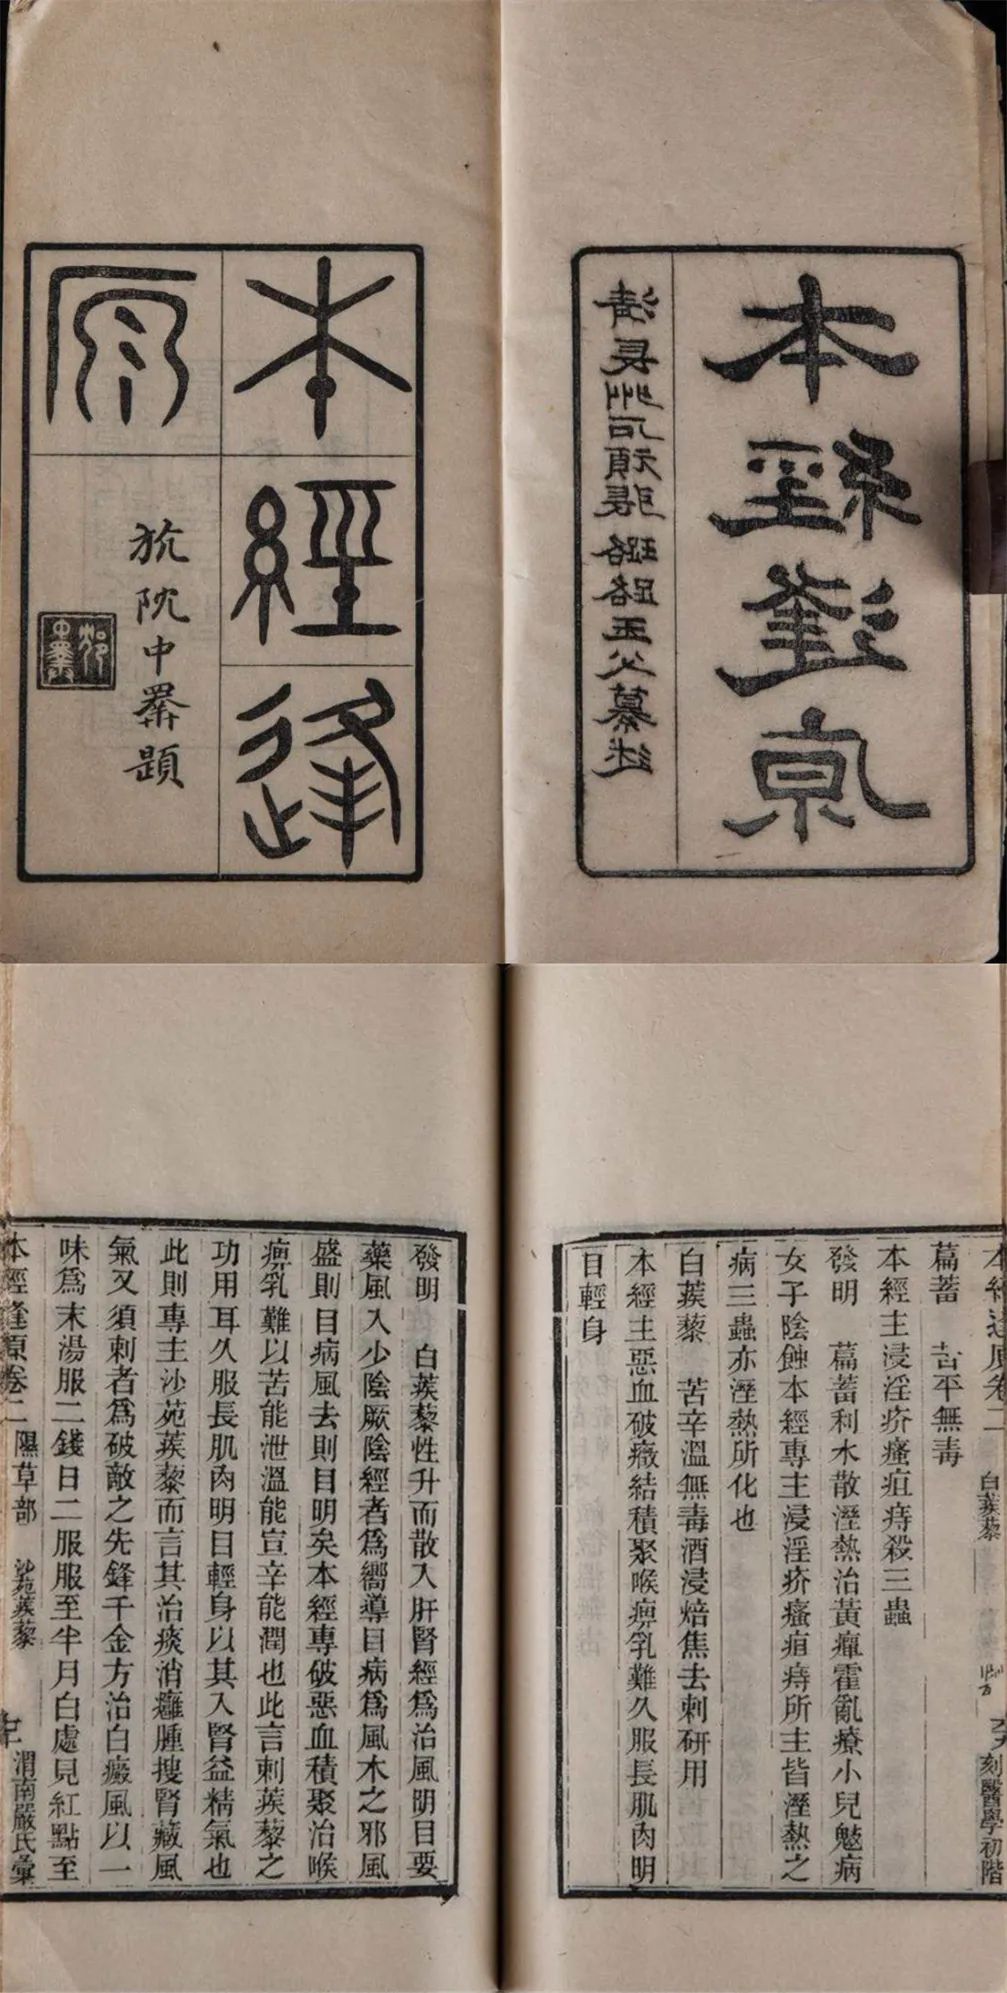 本經逢原
清長州石頑張璐路玉父纂述
本經逢
原
沈中羣題
本經逢原卷二 白蒺藜 刻醫學初階
萹蓄 苦平無毒
本經主浸淫疥瘙疽痔殺三蟲
發明 萹蓄利水散溼熱治黃癉霍亂療小兒魃病
女子陰蝕本經專主浸淫疥瘙疽痔所主皆溼熱之
病三蟲亦溼熱所化也
白蒺藜 苦辛溫無毒酒浸焙焦去刺研用
本經主惡血破癥結積聚喉痹乳難久服長肌肉明
目輕身
發明 白蒺藜性升而散入肝腎經爲治風明目要
藥風入少陰厥陰經者爲嚮導目病爲風木之邪風
盛則目病風去則目明矣本經專破惡血積聚治喉
痹乳難以苦能泄溫能宣辛能潤也此言刺蒺藜之
功用耳久服長肌肉明目輕身以其入腎益精氣也
此則專主沙苑蒺藜而言其治痰消癰腫搜腎藏風
氣又須刺者爲破敵之先鋒千金方治白癜風以一
味爲末湯服二錢日二服服至半月白處見紅點至
本經逢原卷二 隰草部 沙苑蒺藜 渭南嚴氏彙